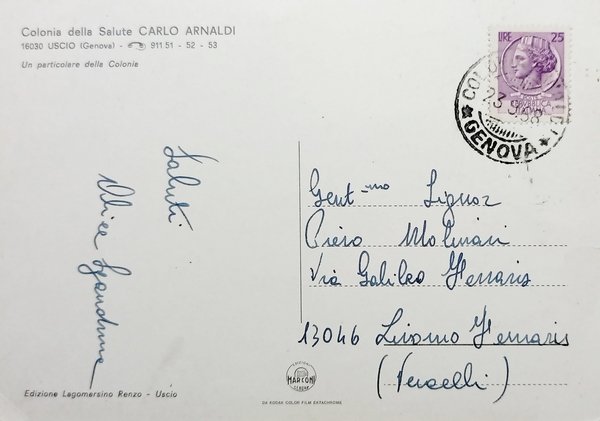 Colonia della Salute CARLO ARNALDI
16030 USCIO (Genova) - 911 51 - 52 - 53
Un particolare della Colonia
LIRE 25
GENOVA
Saluti
Gent.mo Signor
Piero Molinari
Via Galileo Ferraris
13046 Livorno Ferraris
(Vercelli)
Edizione Lagomarsino Renzo - Uscio
MARCONI
DA KODAK COLOR FILM EKTACHROME